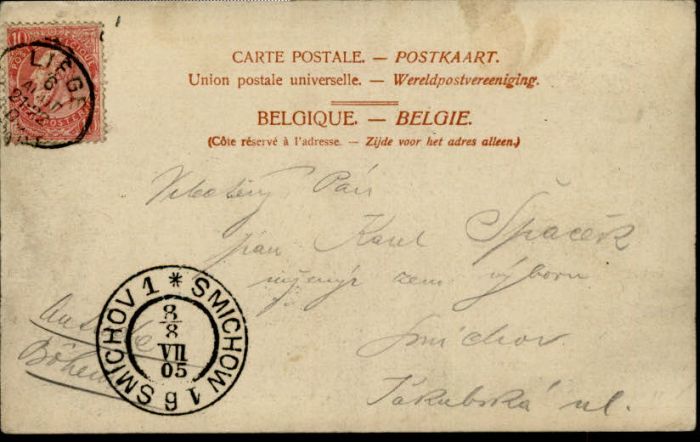 10
LIÉGE
6
AOUT
21-22
CARTE POSTALE. — POSTKAART.
Union postale universelle. — Wereldpostvereeniging.
BELGIQUE. — BELGIE.
(Côte réservé à l'adresse. — Zijde voor het adres alleen.)
Pán
pan Karel Špaček
zem výboru
Smíchov
Jakubská ul.
SMICHOV 1 * SMICHOW 1 6
8/8
VII
05